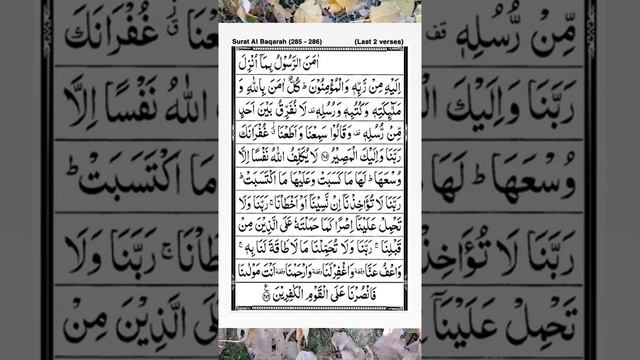 Surat Al Baqarah (285 - 286) (Last 2 verses)
اٰمَنَ الرَّسُوْلُ بِمَاۤ اُنْزِلَ
اِلَيْهِ مِنْ رَّبِّهٖ وَ الْمُؤْمِنُوْنَ ؕ كُلٌّ اٰمَنَ بِاللّٰهِ وَ
مَلٰٓئِكَتِهٖ وَ كُتُبِهٖ وَ رُسُلِهٖ ۟ لَا نُفَرِّقُ بَيْنَ اَحَدٍ
مِّنْ رُّسُلِهٖ ۟ وَ قَالُوْا سَمِعْنَا وَ اَطَعْنَا ۗ غُفْرَانَكَ
رَبَّنَا وَ اِلَيْكَ الْمَصِيْرُ ﴿۲۸۵﴾ لَا يُكَلِّفُ اللّٰهُ نَفْسًا اِلَّا
وُسْعَهَا ؕ لَهَا مَا كَسَبَتْ وَ عَلَيْهَا مَا اكْتَسَبَتْ ؕ
رَبَّنَا لَا تُؤَاخِذْنَاۤ اِنْ نَّسِيْنَاۤ اَوْ اَخْطَاْنَا ۚ رَبَّنَا وَ لَا
تَحْمِلْ عَلَيْنَاۤ اِصْرًا كَمَا حَمَلْتَهٗ عَلَى الَّذِيْنَ مِنْ
قَبْلِنَا ۚ رَبَّنَا وَ لَا تُحَمِّلْنَا مَا لَا طَاقَةَ لَنَا بِهٖ ۚ
وَ اعْفُ عَنَّا ۥ وَ اغْفِرْ لَنَا ۥ وَ ارْحَمْنَا ۥ اَنْتَ مَوْلٰىنَا
فَانْصُرْنَا عَلَى الْقَوْمِ الْكٰفِرِيْنَ ﴿۲۸۶﴾